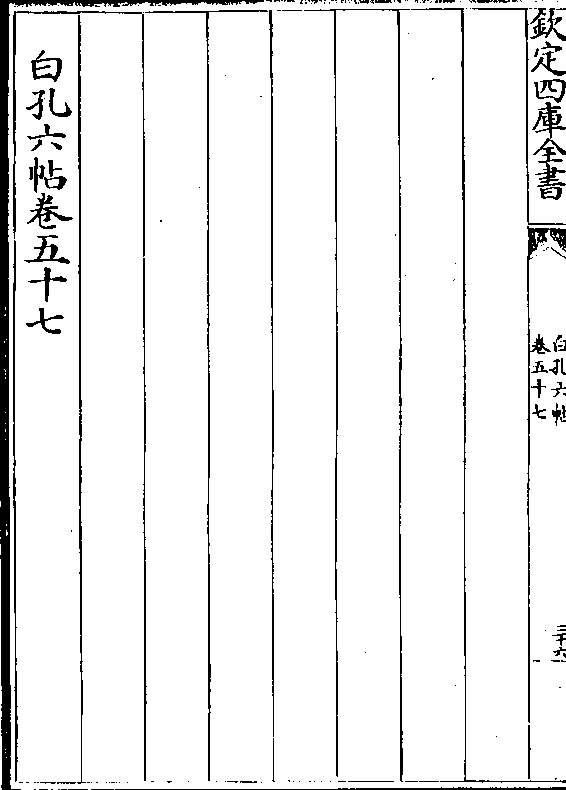 欽定四庫全書
白孔六帖
卷五十七
三十六
白孔六帖卷五十七